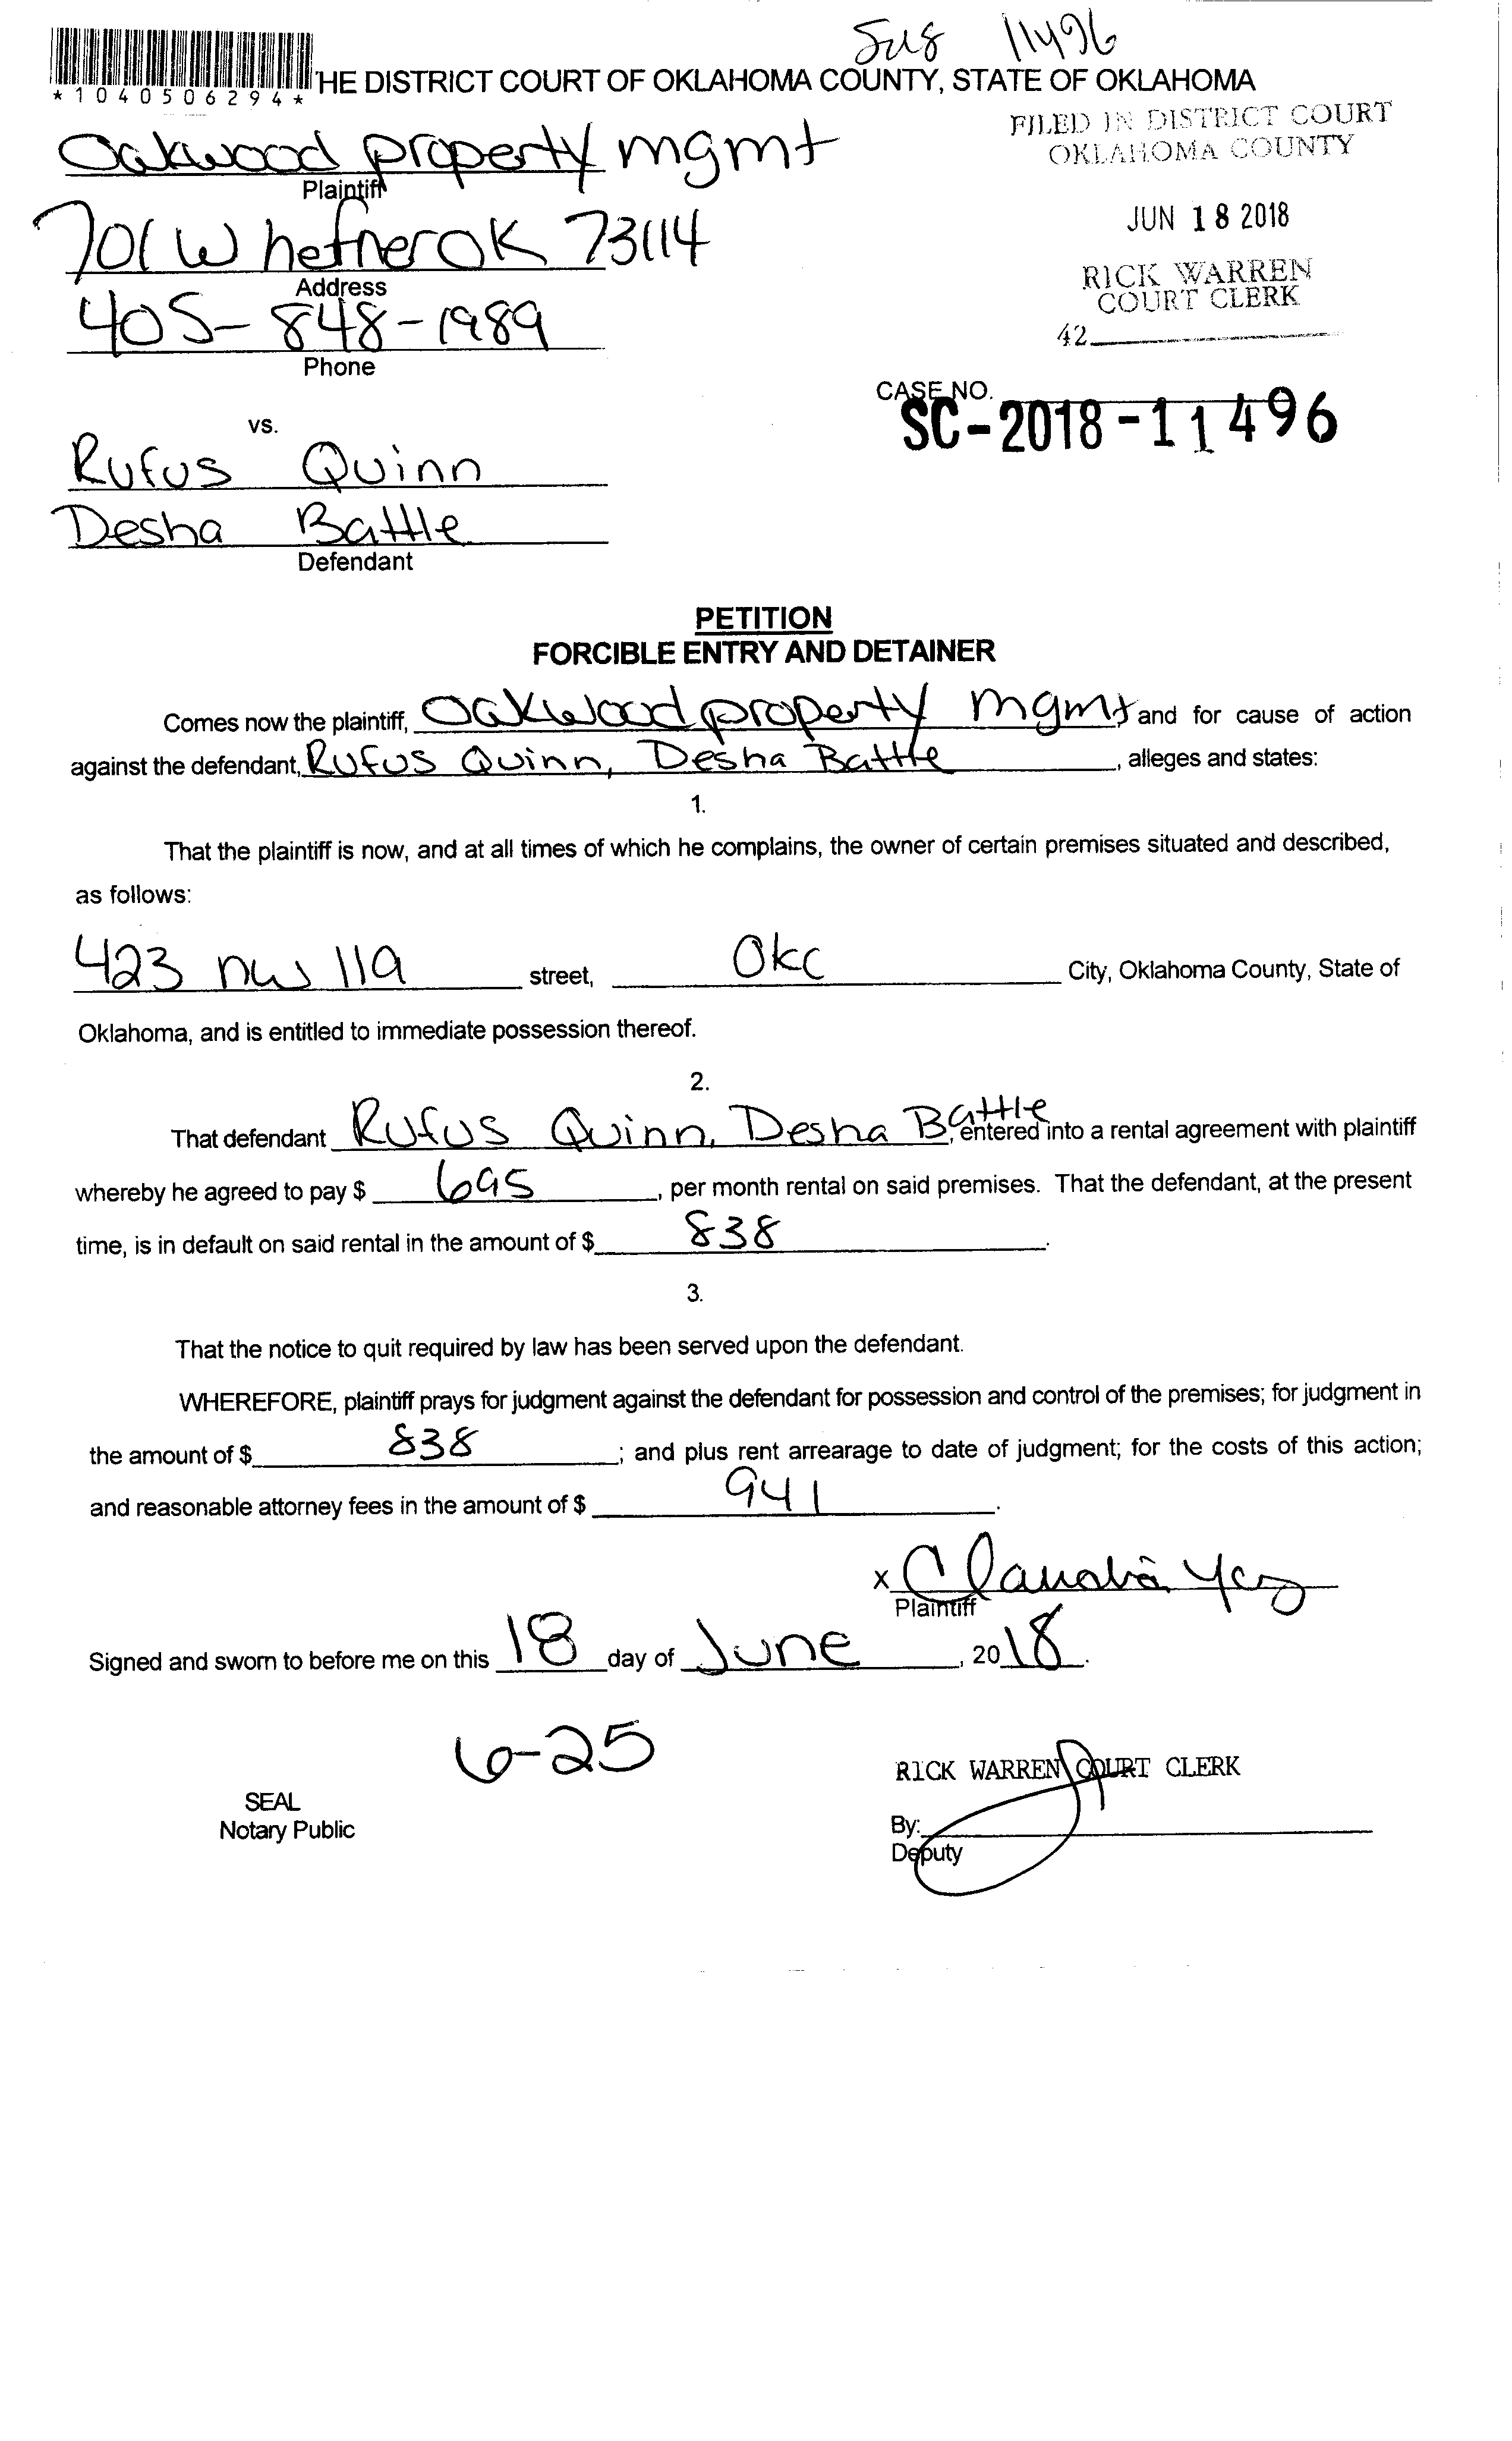 11496
*1040506294* HE DISTRICT COURT OF OKLAHOMA COUNTY, STATE OF OKLAHOMA
FILED IN DISTRICT COURT
OKLAHOMA COUNTY
Oakwood property mgmt
Plaintiff
JUN 18 2018
701 W hefner OK 73114
Address
RICK WARREN
COURT CLERK
405-848-1989
Phone
42
CASE NO.
SC-2018-11496
vs.
Rufus Quinn
Desha Battle
Defendant
PETITION
FORCIBLE ENTRY AND DETAINER
Comes now the plaintiff, Oakwood property mgmt and for cause of action
against the defendant, Rufus Quinn, Desha Battle, alleges and states:
1.
That the plaintiff is now, and at all times of which he complains, the owner of certain premises situated and described,
as follows:
423 nw 119 street, Okc City, Oklahoma County, State of
Oklahoma, and is entitled to immediate possession thereof.
2.
That defendant Rufus Quinn, Desha Battle, entered into a rental agreement with plaintiff
whereby he agreed to pay $ 695, per month rental on said premises. That the defendant, at the present
time, is in default on said rental in the amount of $ 838.
3.
That the notice to quit required by law has been served upon the defendant.
WHEREFORE, plaintiff prays for judgment against the defendant for possession and control of the premises; for judgment in
the amount of $ 838; and plus rent arrearage to date of judgment; for the costs of this action;
and reasonable attorney fees in the amount of $ 941.
x Claudia
Plaintiff
Signed and sworn to before me on this 18 day of June, 2018.
6-25
RICK WARREN COURT CLERK
SEAL
Notary Public
By:
Deputy